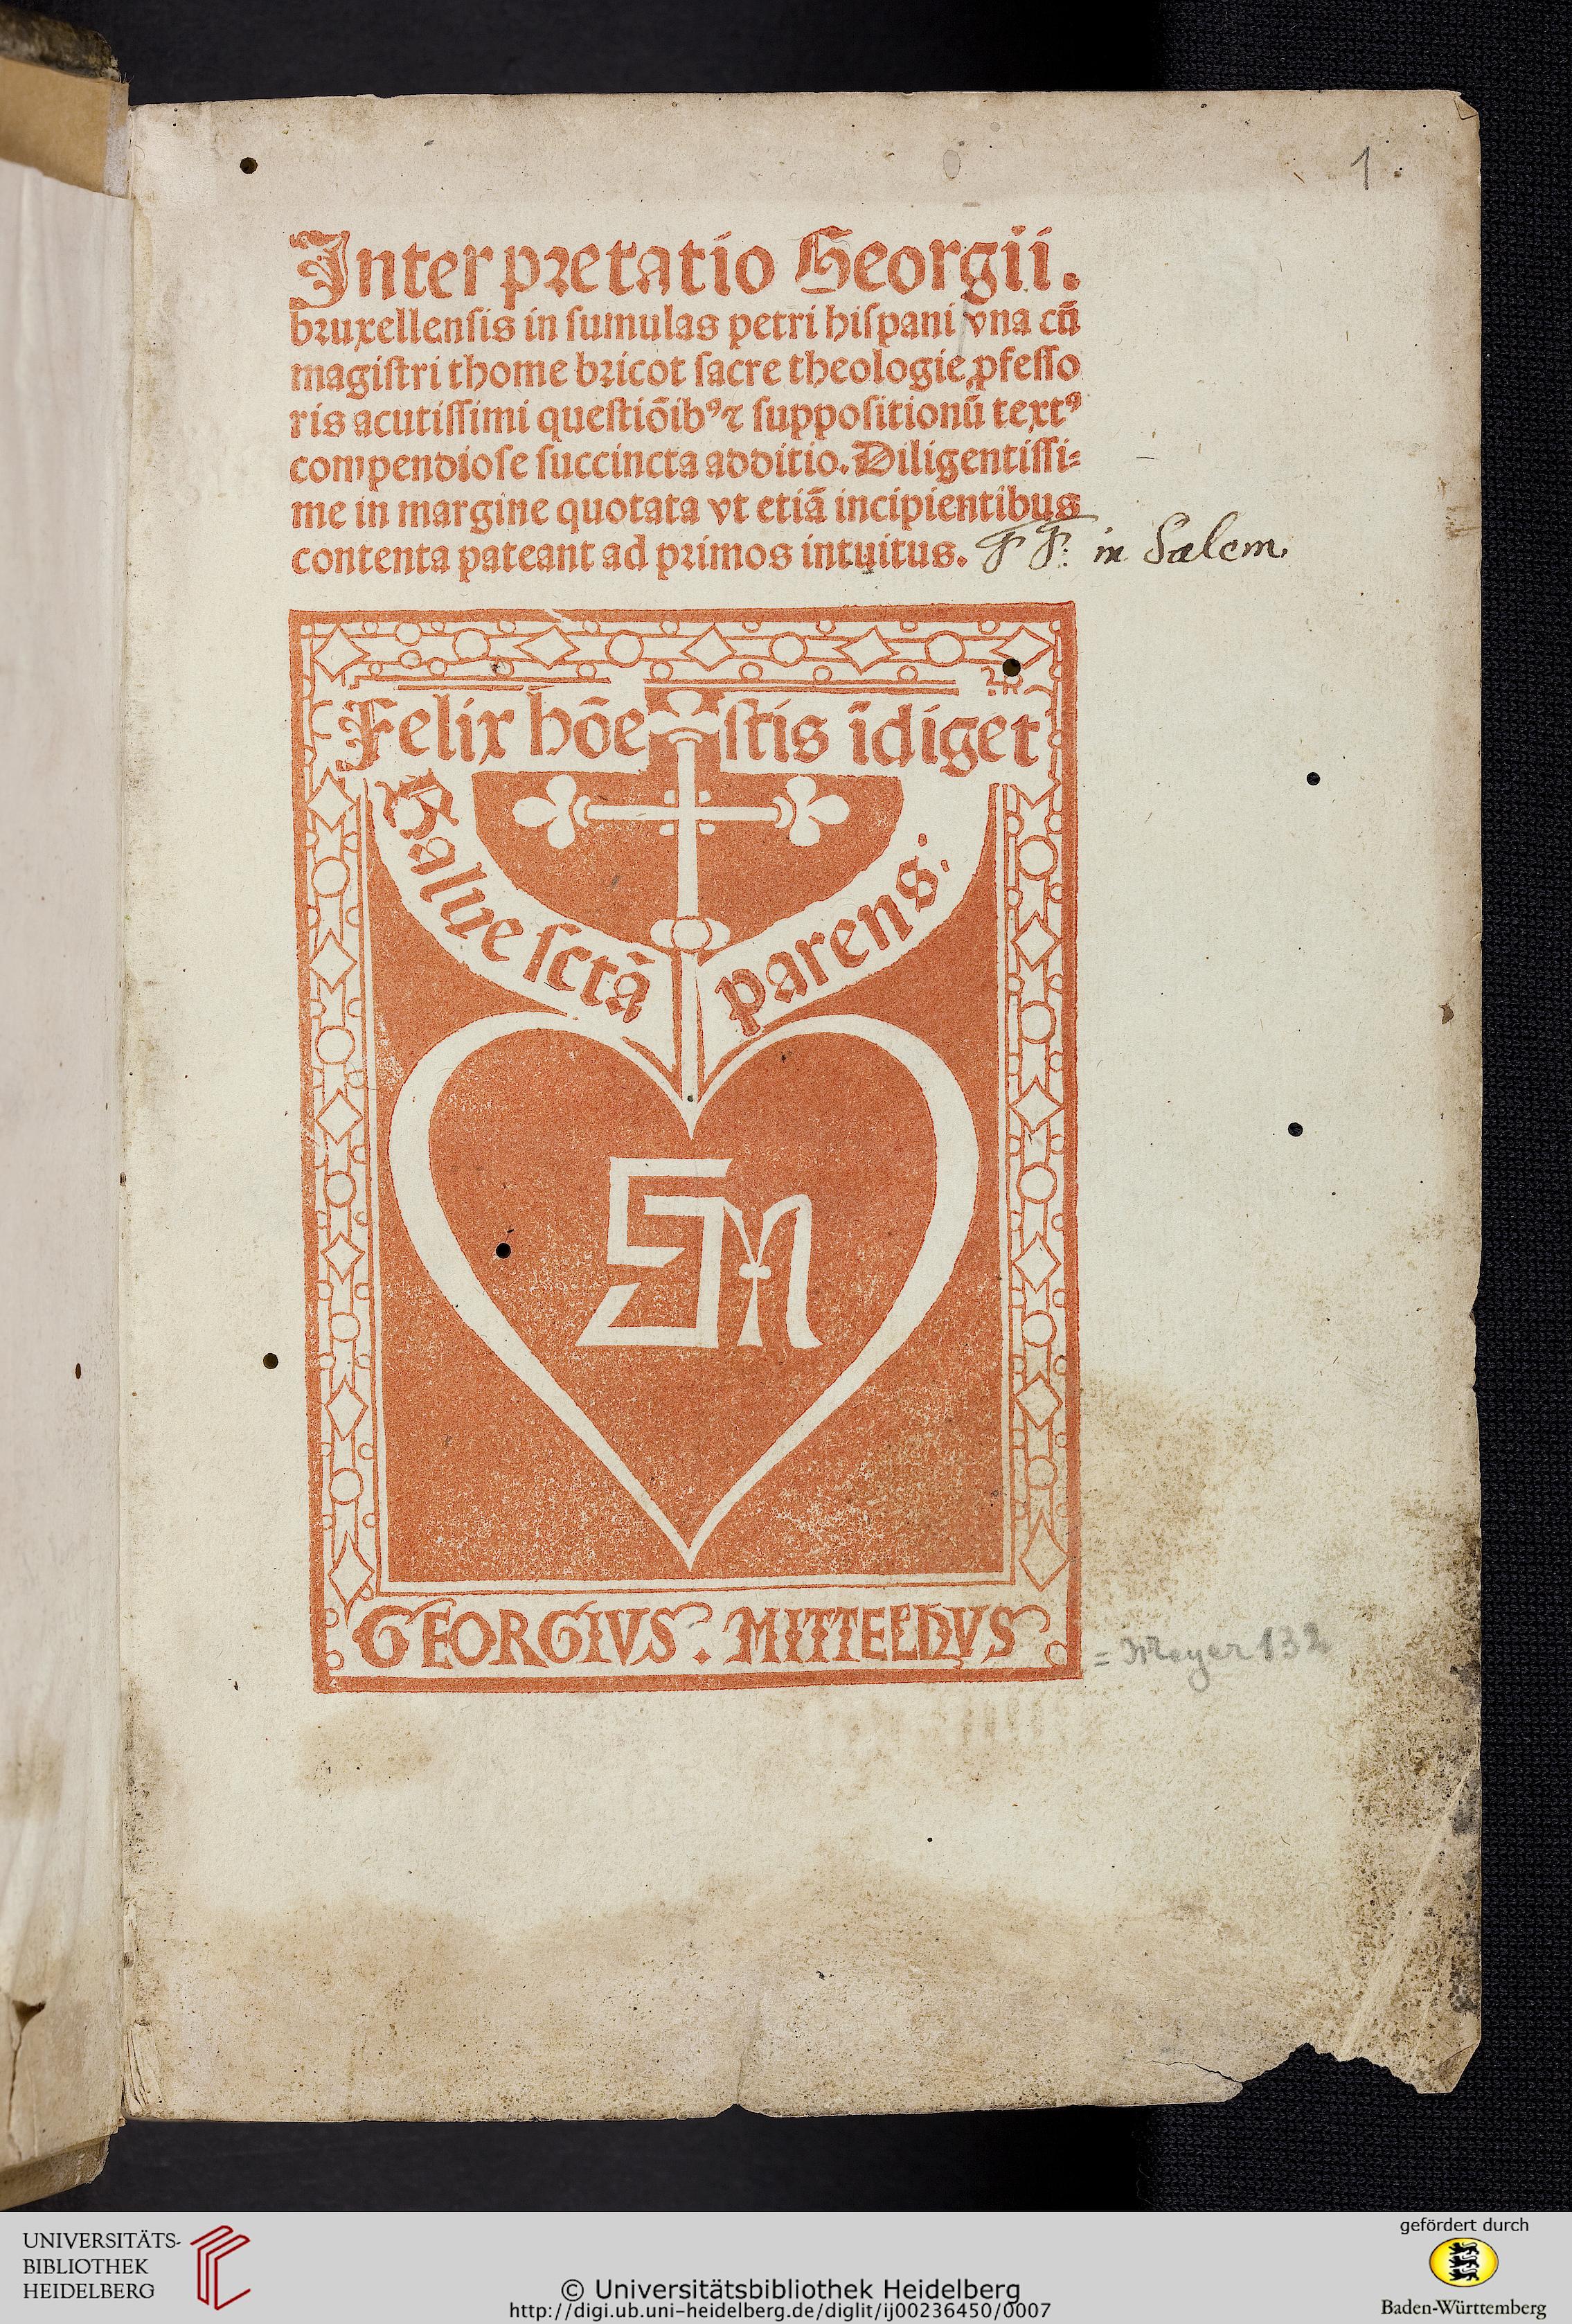 1.
Interpretatio Georgii.
bruxellensis in sumulas petri hispani vna cū
magistri thome bricot sacre theologie ꝓfesso
ris acutissimi questiōibꝰ ⁊ suppositionū textꝰ
compendiose succincta additio. Diligentissi⸗
me in margine quotata vt etiā incipientibus
contenta pateant ad primos intuitus. F F: in Salem.
Felix hōestis īdiget
Salue sctā parens.
GM
GEORGIVS. MITTELHVS
= Meyer 132
UNIVERSITÄTS-
BIBLIOTHEK
HEIDELBERG
© Universitätsbibliothek Heidelberg
http://digi.ub.uni-heidelberg.de/diglit/ij00236450/0007
gefördert durch
Baden-Württemberg